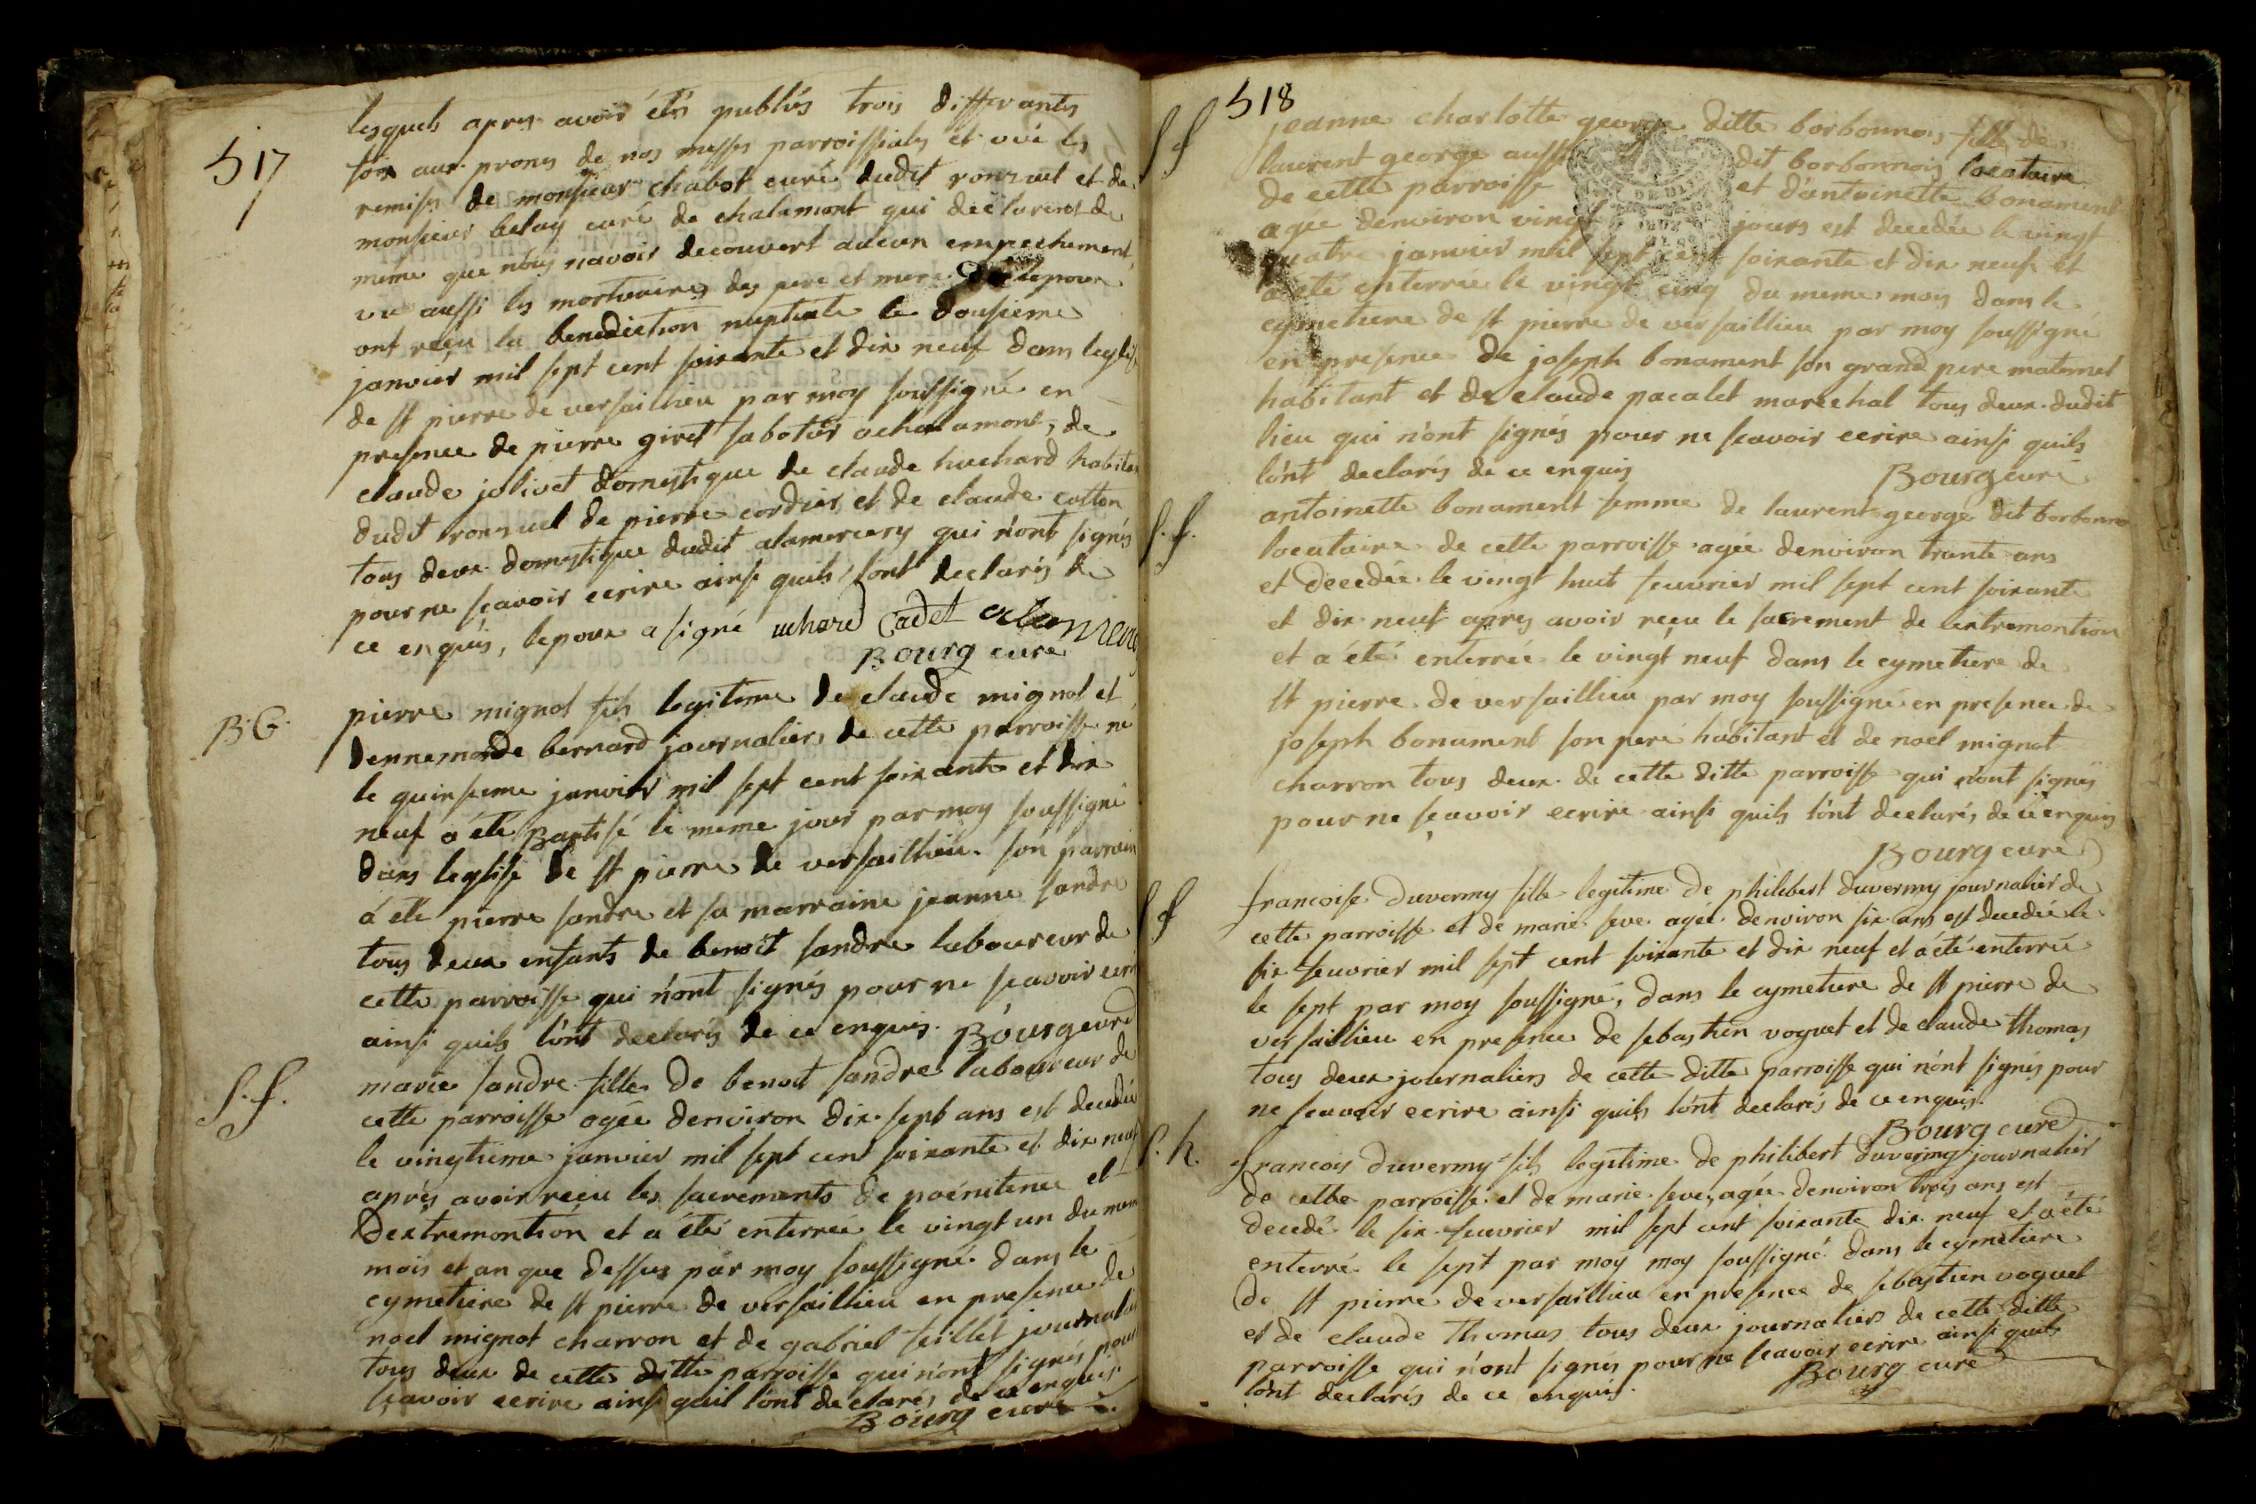 517
lesquels apres avoir étés publiés trois differantes
fois aux prones de nos messes parroissiales et vuë les
remises de monsieur chabot curé dudit ronzuel et de
monsieur belay curé de chalamont qui declarent de
même que nous navoir decouvert aucun empechement
vu aussi les mortuaires des pere et mere de lepoux
ont reçu la benediction nuptiale le dousieme
janvier mil sept cent soixante et dix neuf dans leglise
de st pierre de versaillieu par moy soussigné en
presence de pierre giret sabotier a chalamont, de
claude jolivet domestique de claude huchard habitant
dudit ronzuel de pierre cordier et de claude cotton
tous deux domestique dudit alamercery qui n'ont signés
pour ne scavoir ecrire ainsi quils l'ont declarés de
ce enquis, lepoux a signé uchard Cadet
Bourg curé
B. G.
pierre mignot fils legitime de claude mignot et
dennemonde bernard journaliers de cette parroisse né
le quinsieme janvier mil sept cent soixante et dix
neuf a été Baptisé le meme jour par moy soussigné
dans leglise de st pierre de versaillieu. son parrain
á été pierre sandre et sa marraine jeanne sandre
tous deux enfants de benoit sandre laboureur de
cette parroisse qui n'ont signés pour ne scavoir ecrire
ainsi quils l'ont declarés de ce enquis. Bourg curé
S. f.
marie sandre fille de benoit sandre laboureur de
cette parroisse agée denviron dix-sept ans est decedée
le vingtieme janvier mil sept cent soixante et dix neuf
aprés avoir reçu les sacrements de poénitence et
Dextremontion et a été enterreé le vingt un du meme
mois et an que dessus par moy soussigné dans le
cymetiere de st pierre de versaillieu en presence de
noel mignot charron et de gabriel feillet journalier
tous deux de cette ditte parroisse qui n'ont signés pour
scavoir ecrire ainsi quil l'ont declarés de ce enquis
Bourg curé
518
S f
jeanne charlotte george ditte borbonnois fille de
laurent george aussi dit borbonnois locataire
de cette parroisse et d'antoinette bonament
agee denviron vingt jours est decedée le vingt
quatre janvier mil sept cent soixante et dix neuf et
a été enterrée le vingt cinq du meme mois dans le
cymetiere de st pierre de versaillieu par moy soussigné
en presence de joseph bonament son grand pere maternel
habitant et de claude pacalet marechal tous deux dudit
lieu qui n'ont signés pour ne scavoir ecrire ainsi quils
l'ont declarés de ce enquis
Bourg curé
S. f.
antoinette bonament femme de laurent george dit borbonno
locataire de cette parroisse agée denviron trante ans
et decedée le vingt huit feuvrier mil sept cent soixante
et dix neuf apres avoir reçu le sacrement de lextremontion
et a été enterrée le vingt neuf dans le cymetiere de
st pierre de versaillieu par moy soussigné en presence de
joseph bonament son peré habitant et de noel mignot
charron tous deux de cette ditte parroisse qui n'ont signés
pour ne sçavoir ecrire ainsi quils l'ont declarés de ce enquis
Bourg curé
S f
francoise duvermy fille legitime de philibert duvermy journalier de
cette parroisse et de marie seve agée denviron six ans est decedée le
six feuvrier mil sept cent soixante et dix neuf et a été enterrée
le sept par moy soussigné, dans le cymetiere de st pierre de
versaillieu en presence de sebastien voguet et de claude thomas
tous deux journaliers de cette ditte parroisse qui n'ont signés pour
ne scavoir ecrire ainsi quils l'ont declarés de ce enquis.
Bourg curé
S. h.
francois duvermy fils legitime de philibert duvermy journalier
de cette parroisse et de marie seve, agée denviron trois ans est
decedé le six feuvrier mil sept cent soixante dix neuf et a été
enterré le sept par moy moy soussigné dans le cymetiere
de st pierre de versaillieu en presence de sebastien voguet
et de claude thomas tous deux journaliers de cette ditte
parroisse qui n'ont signés pour ne scavoir ecrire ainsi quils
l'ont declarés de ce enquis.
Bourg curé